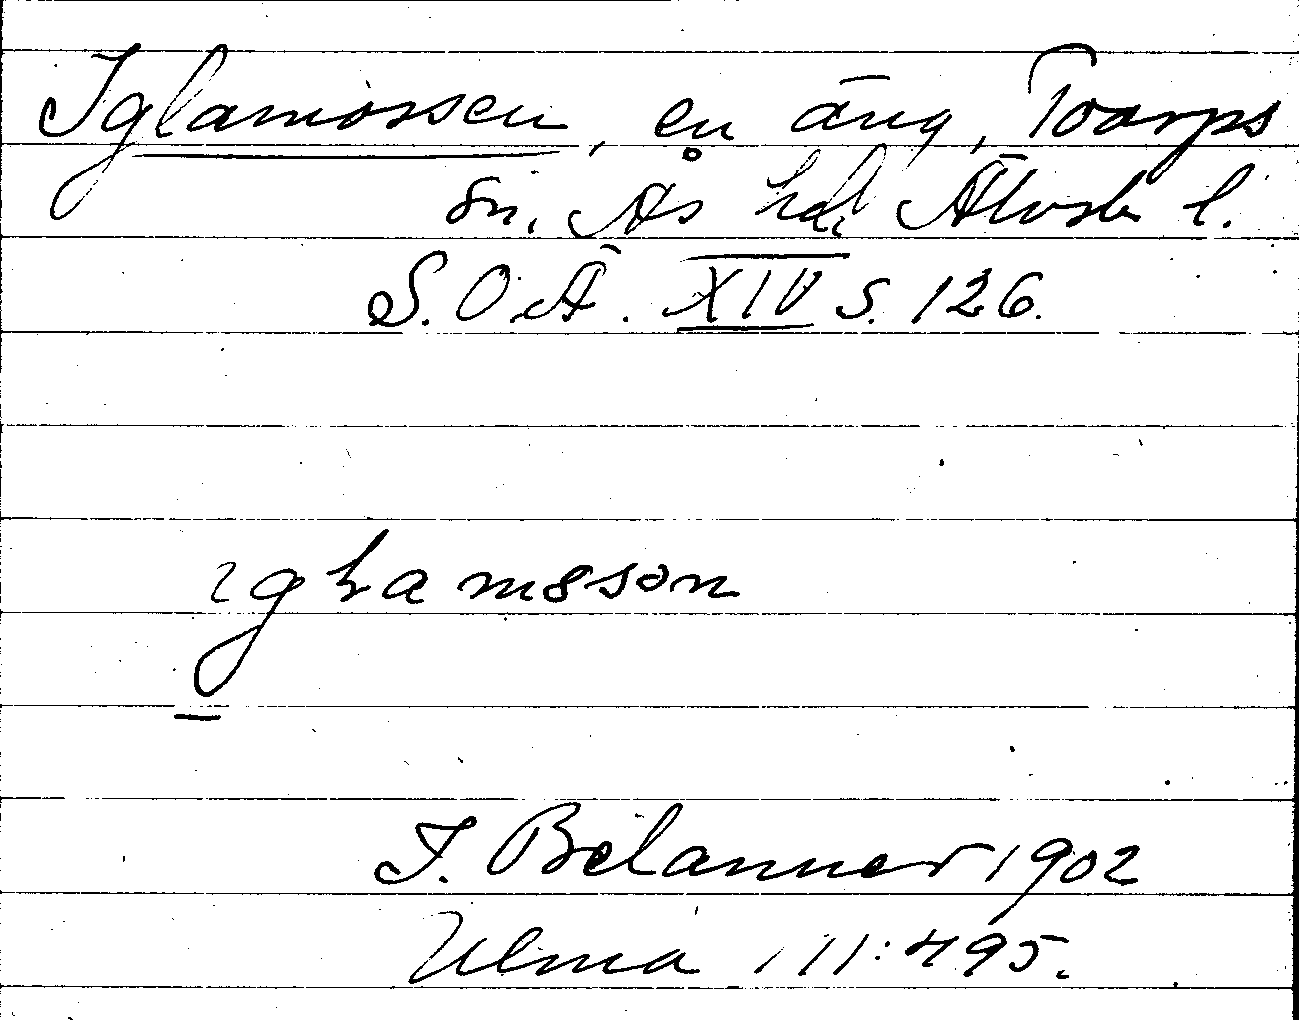 Iglamossen, en äng, Toarps
sn, Ås hd, Älvsb l.
S.O.Ä. XIV s. 126.
F. Belanner 1902
Ulma 111:495.